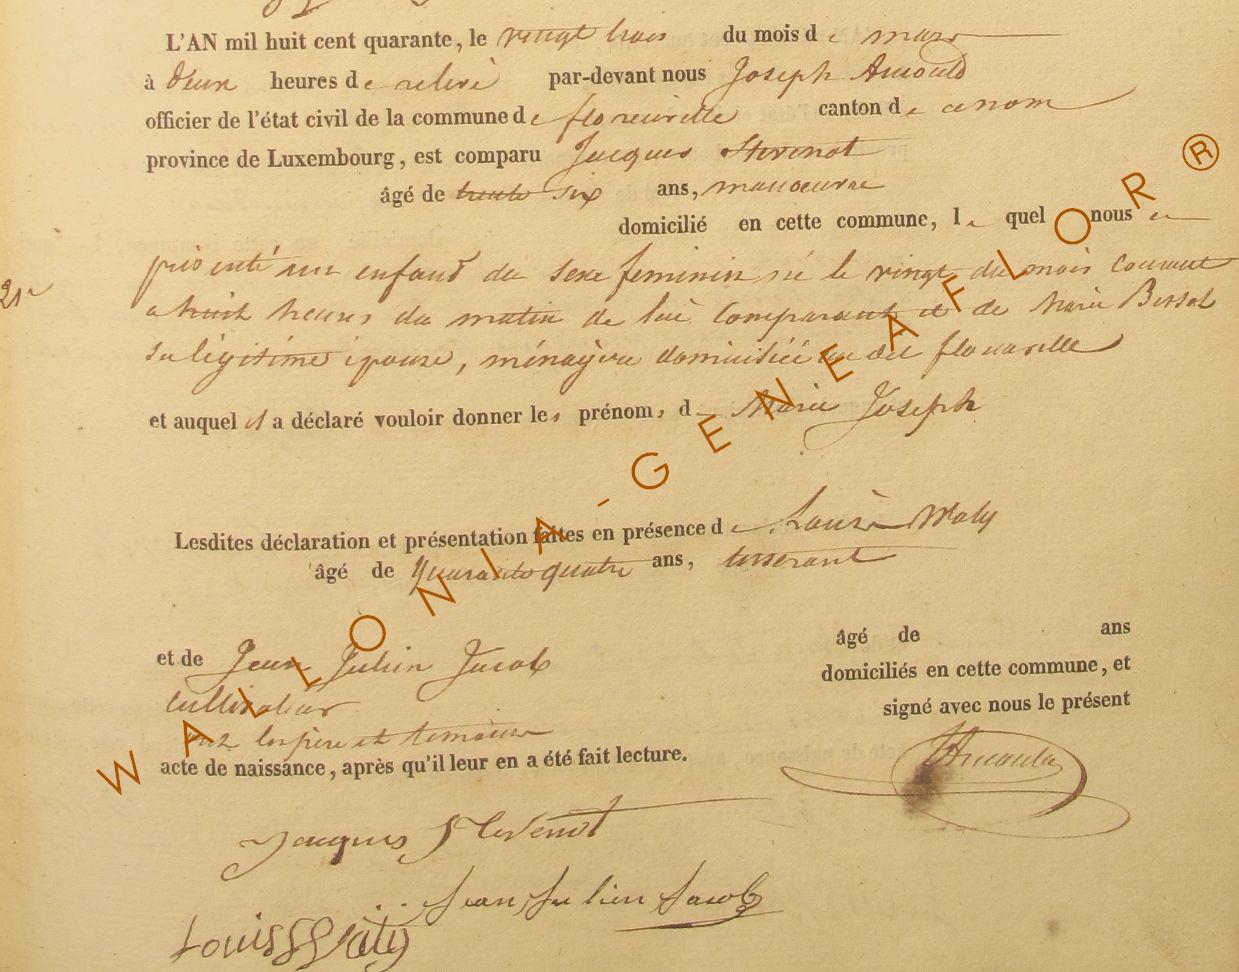 L'AN mil huit cent quarante, le vingt trois du mois de mars
à d'eux heures de relevé par-devant nous Joseph Arnould
officier de l'état civil de la commune de florenville canton de
province de Luxembourg, est comparu Jacques Stevenot
âgé de trente six ans, manoeuvre
domicilié en cette commune, le quel nous a
présenté un enfant du sexe feminin né le vingt du mois courant
21r
a huit heures du matin de lui comparant et de Marie
sa légitime épouse, ménagère domiciliée florenville
et auquel il a déclaré vouloir donner les prénoms de Marie Joseph
Lesdites déclaration et présentation faites en présence de Louis Waty
âgé de quarante quatre ans, tisserant
et de Jean Julien Jacob âgé de ans
cultivateur domiciliés en cette commune, et
ont les père et temoins signé avec nous le présent
acte de naissance, après qu'il leur en a été fait lecture.
JArnould
Jacques Stevenot
Jean Julien Jacob
Louis Waty
WALLONIA-GENEAFLOR®